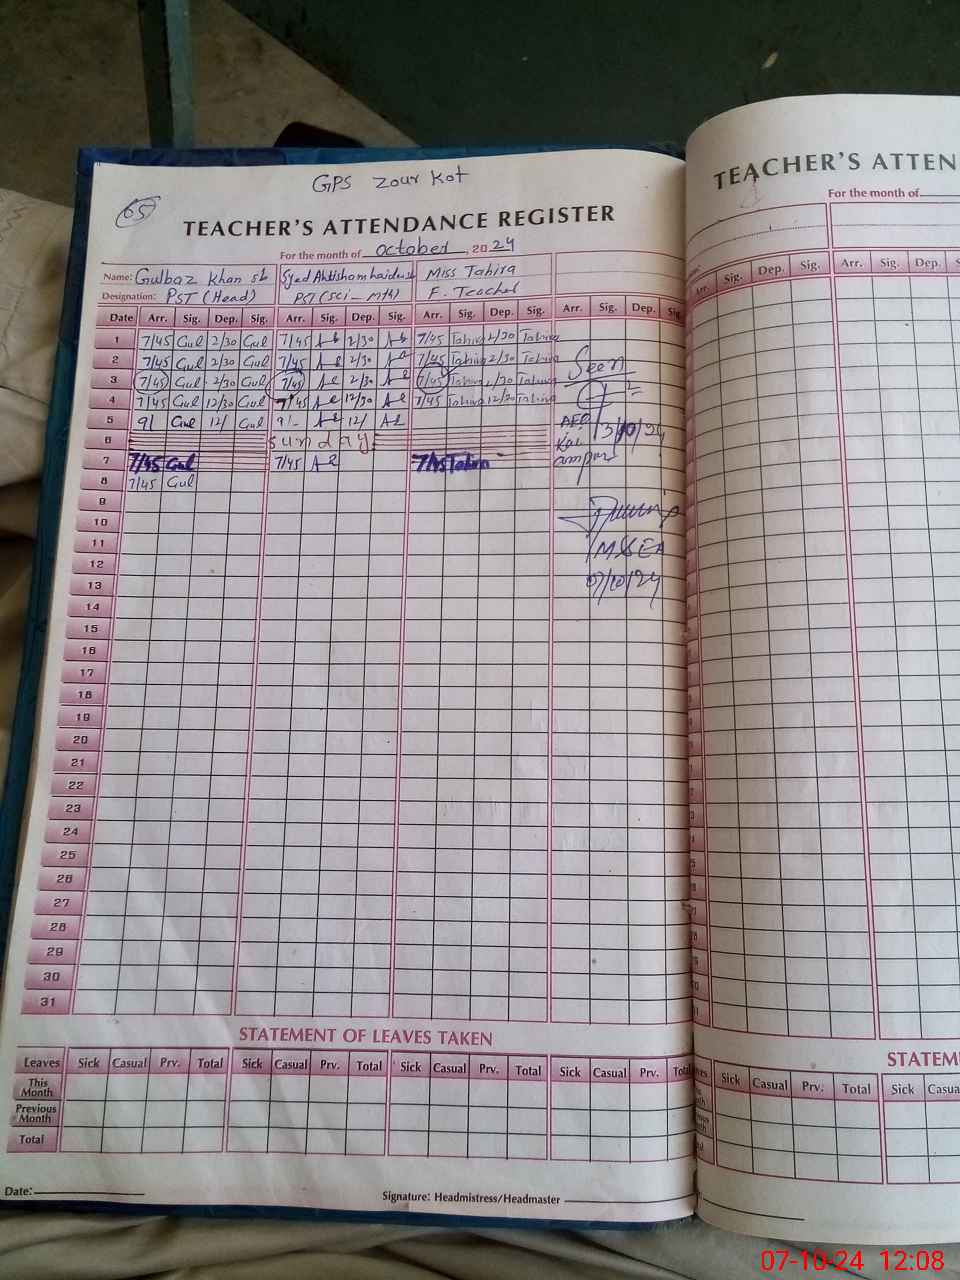 GPS Zour Kot
65
TEACHER'S ATTENDANCE REGISTER
For the month of October, 2024
Name: Gulbaz Khan sb Syed Ahtishom haider sb Miss Tahira
Designation: PST (Head) PST (Sci - mth) F. Teacher
Date Arr. Sig. Dep. Sig. Arr. Sig. Dep. Sig. Arr. Sig. Dep. Sig. Arr. Sig. Dep. Sig.
1 7/45 Gul 2/30 Gul 7/45 2/30 7/45 Tahira 2/30 Tahira
2 7/45 Gul 2/30 Gul 7/45 2/30 7/45 Tahira 2/30 Tahira
3 7/45 Gul 2/30 Gul 7/45 2/30 7/45 Tahira 2/30 Tahira
4 7/45 Gul 12/30 Gul 7/45 12/30 7/45 Tahira 12/30 Tahira
5 9/ Gul 12/ Gul 9/- 12/
6 Sunday
7 7/45 Gul 7/45 7/45 Tahira
8 7/45 Gul
9
10
11
12
13
14
15
16
17
18
19
20
21
22
23
24
25
26
27
28
29
30
31
Seen
3/10/24
07/10/24
STATEMENT OF LEAVES TAKEN
Leaves Sick Casual Prv. Total Sick Casual Prv. Total Sick Casual Prv. Total Sick Casual Prv. Total
This Month
Previous Month
Total
Date:
Signature: Headmistress/Headmaster
TEACHER'S ATTEN
For the month of
Arr. Sig. Dep. Sig. Arr. Sig. Dep.
STATEM
Sick Casual Prv. Total Sick Casua
07-10-24 12:08